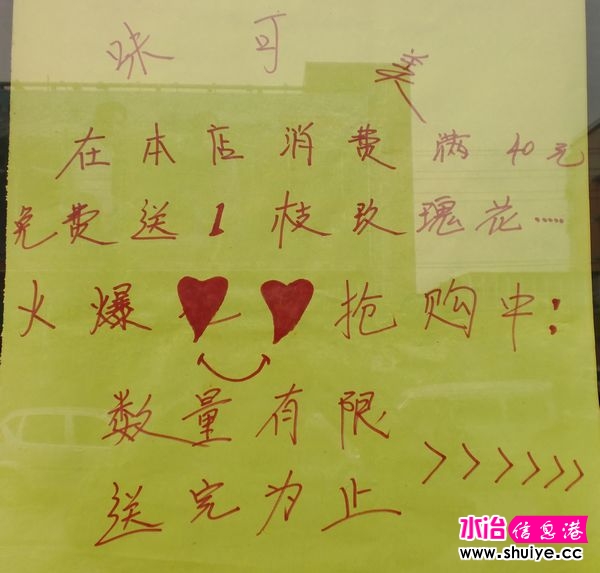 咪可
在本店消费满40元
免费送1枝玫瑰花……
火爆抢购中:
数量有限
送完为止 >>>>>>
水冶信息港
www.shuiye.cc